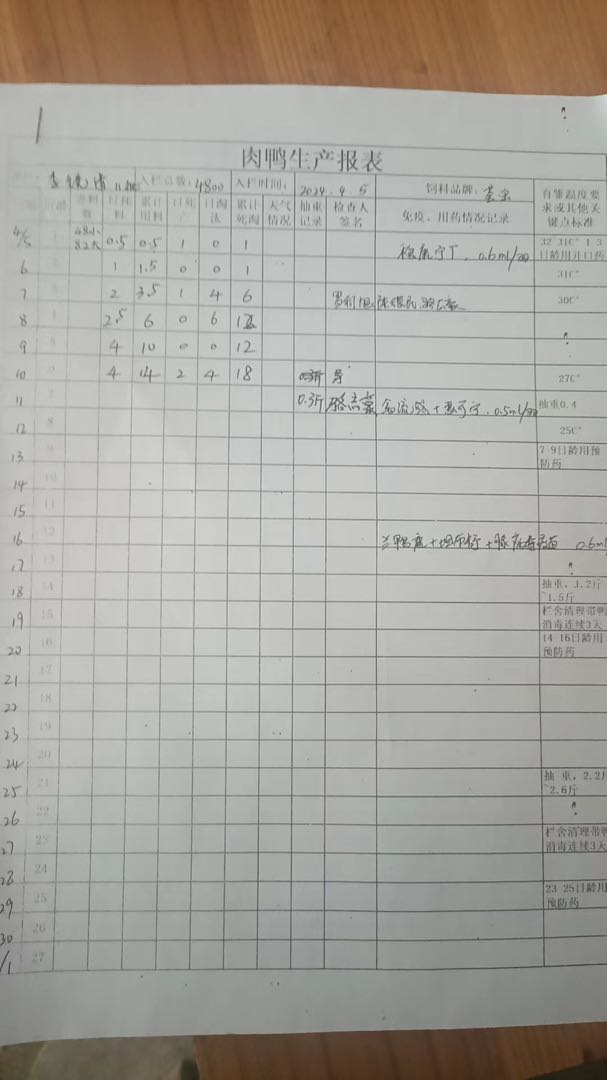 肉鸭生产报表
入栏总数:4800 入栏时间:2024.4.5 饲料品牌:
日龄 进料数 日耗料 累计用料 日死亡 日淘汰 累计死淘 天气情况 抽重记录 检查人签名 免疫、用药情况记录 育雏温度要求或其他关键点标准
4/5 1 0.5 0.5 1 0 1 0.6ml/ 32 31C° 1 3日龄用开口药
6 1 1.5 0 0 1 31C°
7 2 3.5 1 4 6 30C°
8 2.5 6 0 6 12
9 4 10 0 0 12
10 4 14 2 4 18 0.3斤 27C°
11 0.3斤 0.5ml/ 抽重0.4
12 25C°
13 7 9日龄用预防药
14 10
15 11
16 12 0.6ml
17
18 14 抽重,1.2斤~1.5斤
19 15 栏舍清理带鸭消毒连续3天
20 16 14 16日龄用预防药
21 17
22 18
23 19
24 20
25 21 抽重,2.2斤~2.6斤
26 22
27 23 栏舍清理带鸭消毒连续3天
28 24
29 25 23 25日龄用预防药
30 26
/1 27